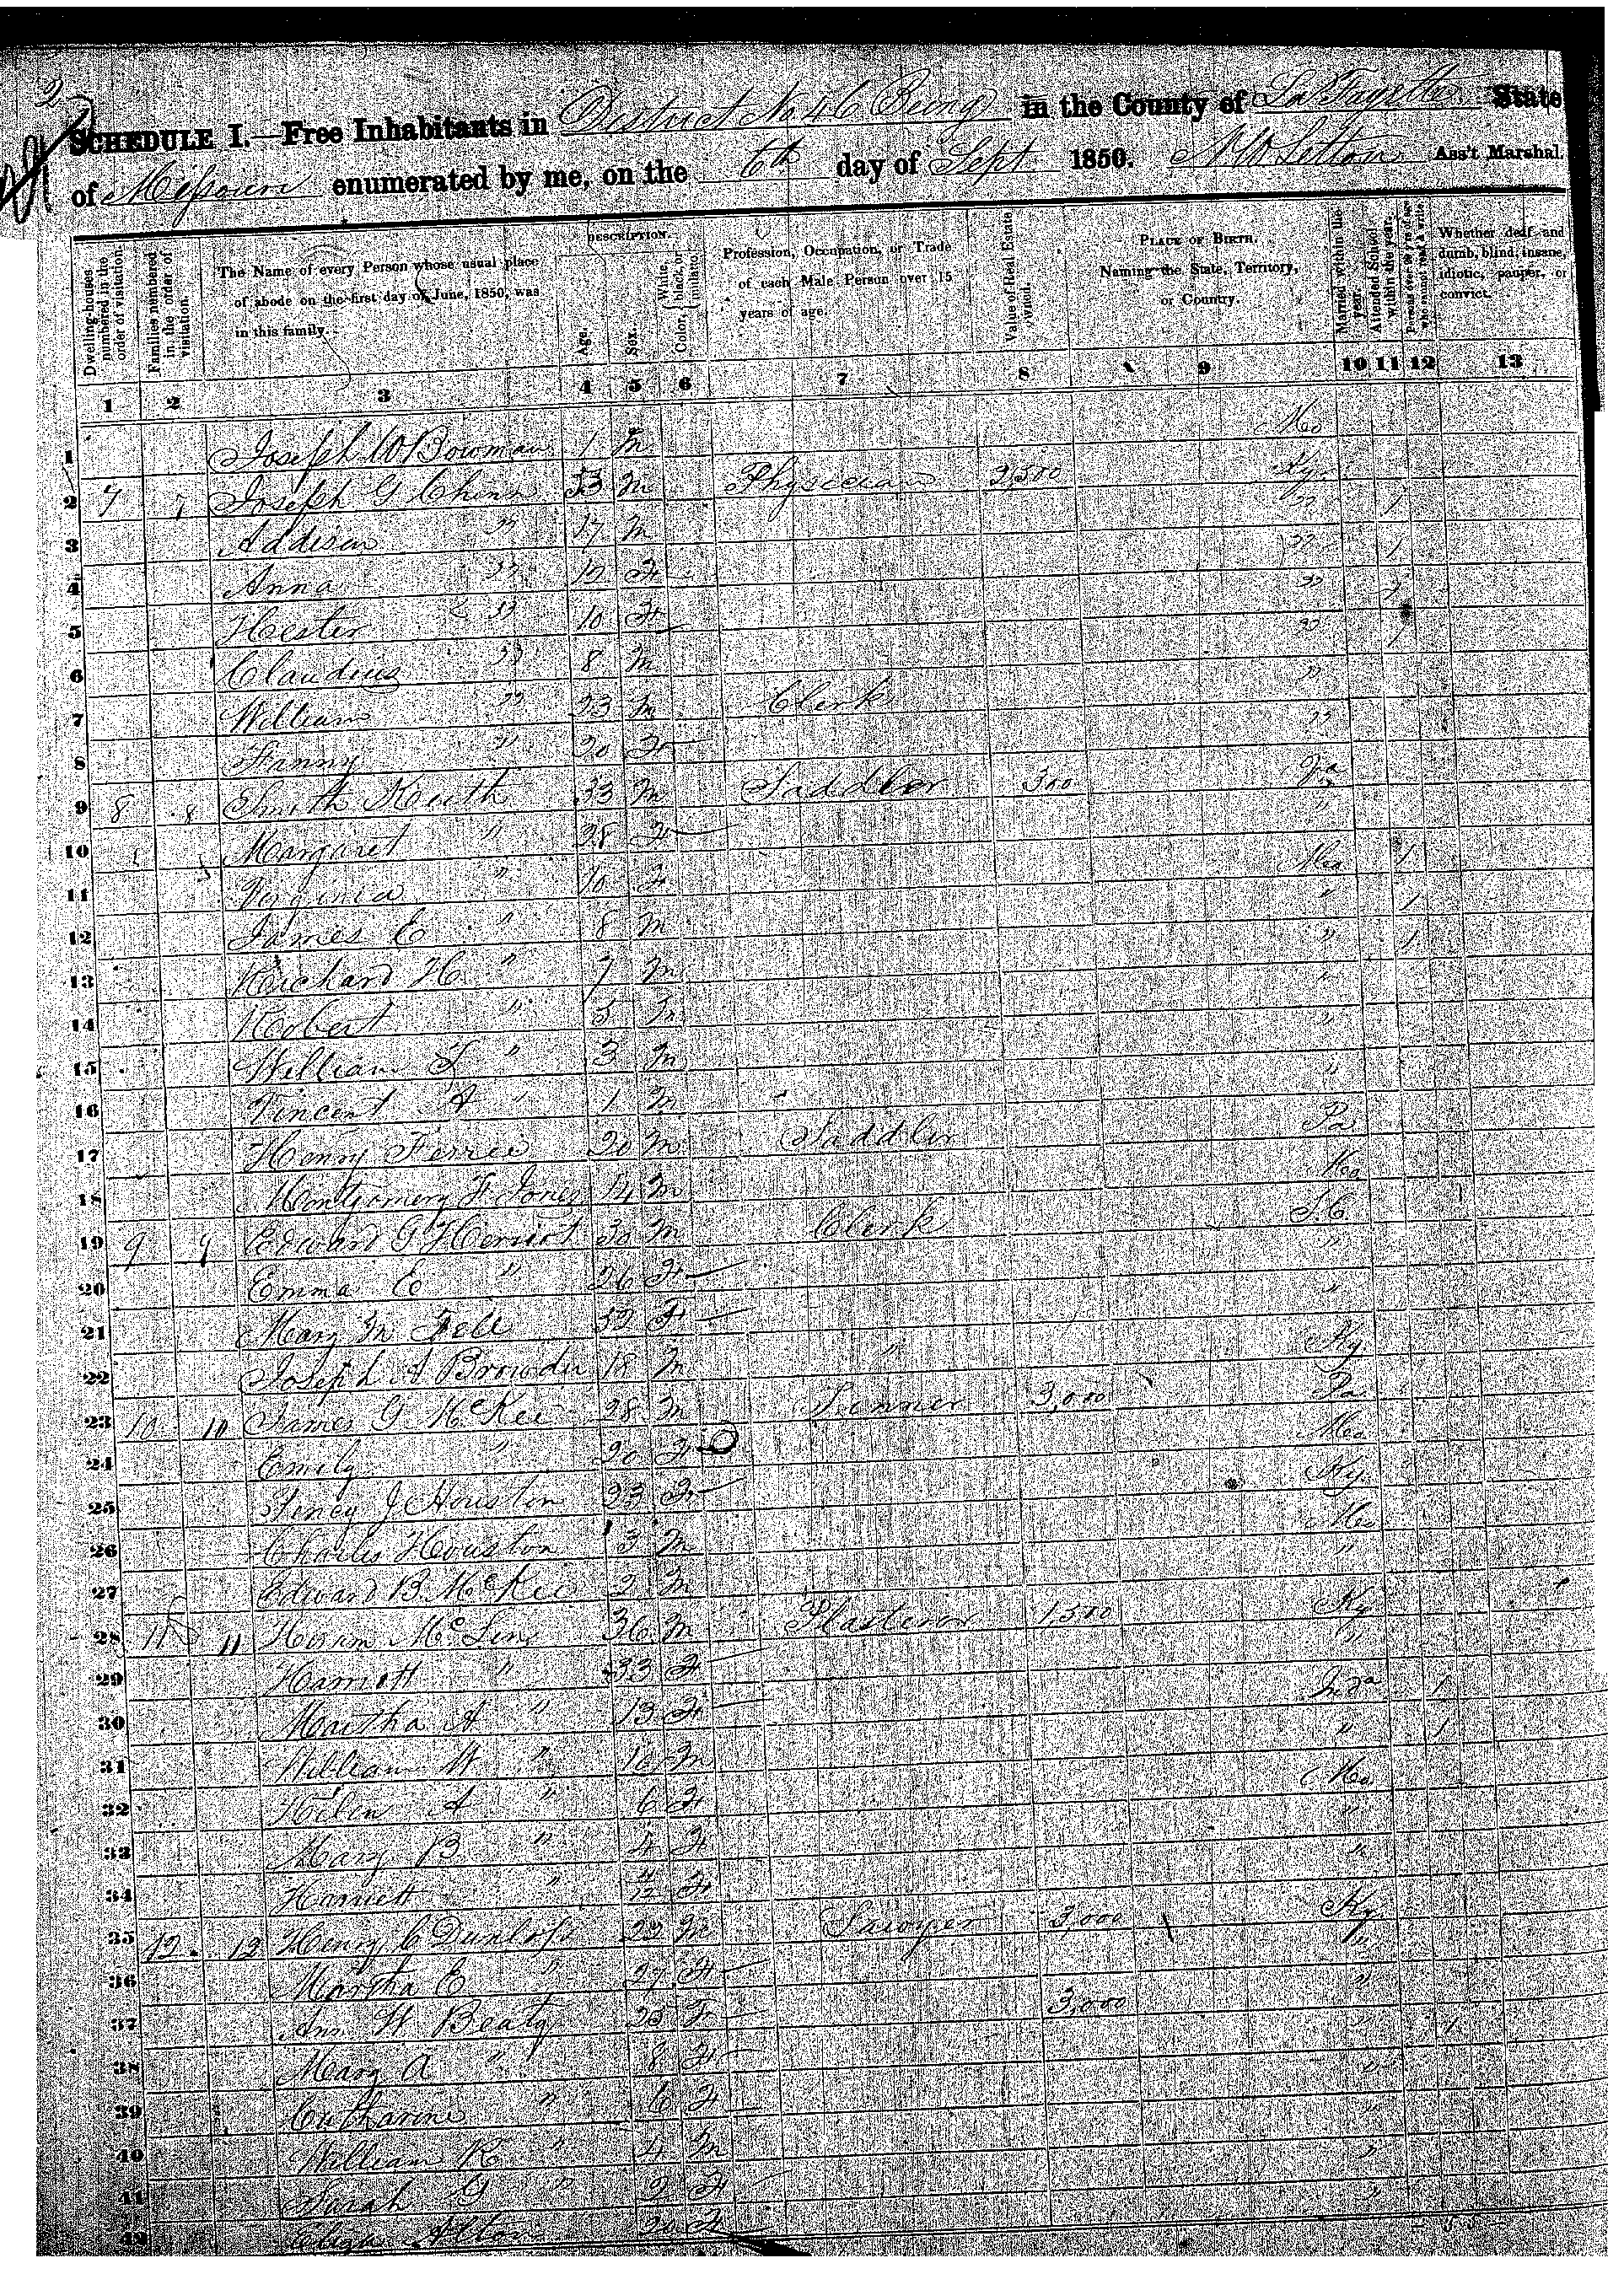 2
SCHEDULE I.—Free Inhabitants in District No 46 Being in the County of La Fayette State
of Missouri enumerated by me, on the 6th day of Sept 1850. Ass't Marshal.
Dwelling-houses numbered in the order of visitation.
Families numbered in the order of visitation.
The Name of every Person whose usual place of abode on the first day of June, 1850, was in this family.
DESCRIPTION.
Age.
Sex.
Color, White, black, or mulatto.
Profession, Occupation, or Trade of each Male Person over 15 years of age.
Value of Real Estate owned.
PLACE OF BIRTH. Naming the State, Territory, or Country.
Married within the year.
Attended School within the year.
Persons over 20 y'rs of age who cannot read & write.
Whether deaf and dumb, blind, insane, idiotic, pauper, or convict.
1 2 3 4 5 6 7 8 9 10 11 12 13
1 Joseph W Bowman 1 M Mo
2 7 7 Joseph G Chinn 53 M Physician 2,500 Ky
3 Addison " 17 M " 1
4 Anna " 12 F " 1
5 Hester " 10 F " 1
6 Claudius " 8 M " 1
7 William " 23 M Clerk "
8 Fanny " 20 F "
9 8 8 Smith Keith 33 M Saddler 300 Va
10 Margaret " 28 F "
11 Virginia " 10 F Mo 1
12 James E " 8 M " 1
13 Richard H " 7 M " 1
14 Robert " 5 M "
15 William L " 3 M "
16 Vincent A " 1 M "
17 Henry Ferree 20 M Saddler Pa
18 Montgomery F Jones 14 M Mo
19 9 9 Edward G Heriot 30 M Clerk S.C.
20 Emma E " 26 F "
21 Mary M Fell 32 F "
22 Joseph A Browder 18 M " Ky
23 10 10 James G McKee 28 M Tanner 3,000 Pa
24 Emily " 20 F Mo
25 J Houston 23 F Ky
26 Charles Houston 3 M Mo
27 Edward B McKee 2 M "
28 11 11 Hiram McLin 36 M Plasterer 1500 Ky
29 Harriett " 33 F "
30 Martha A " 13 F Inda 1
31 William W " 10 M " 1
32 Helen A " 6 F Mo
33 Mary B " 4 F "
34 Harriett " F "
35 12 12 Henry C Dunlop 22 M Lawyer 3,000 Ky
36 Martha E " 27 F "
37 Ann W Beaty 25 F 3,000 "
38 Mary A " 8 F " 1
39 Catharine " 6 F "
40 William R " 4 M "
41 Sarah G " 2 F "
42 Eliza F "